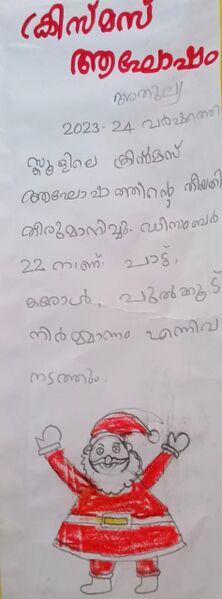 ക്രിസ്മസ്
ആഘോഷം
അതുല്യ
2023-24 വർഷത്തെ
സ്കൂളിലെ ക്രിസ്മസ്
ആഘോഷത്തിന്റെ തീയതി
തീരുമാനിച്ചു. ഡിസംബർ
22 നാണ്. പാട്ട്,
കരോൾ, പുൽക്കൂട്
നിർമ്മാണം എന്നിവ
നടത്തും.